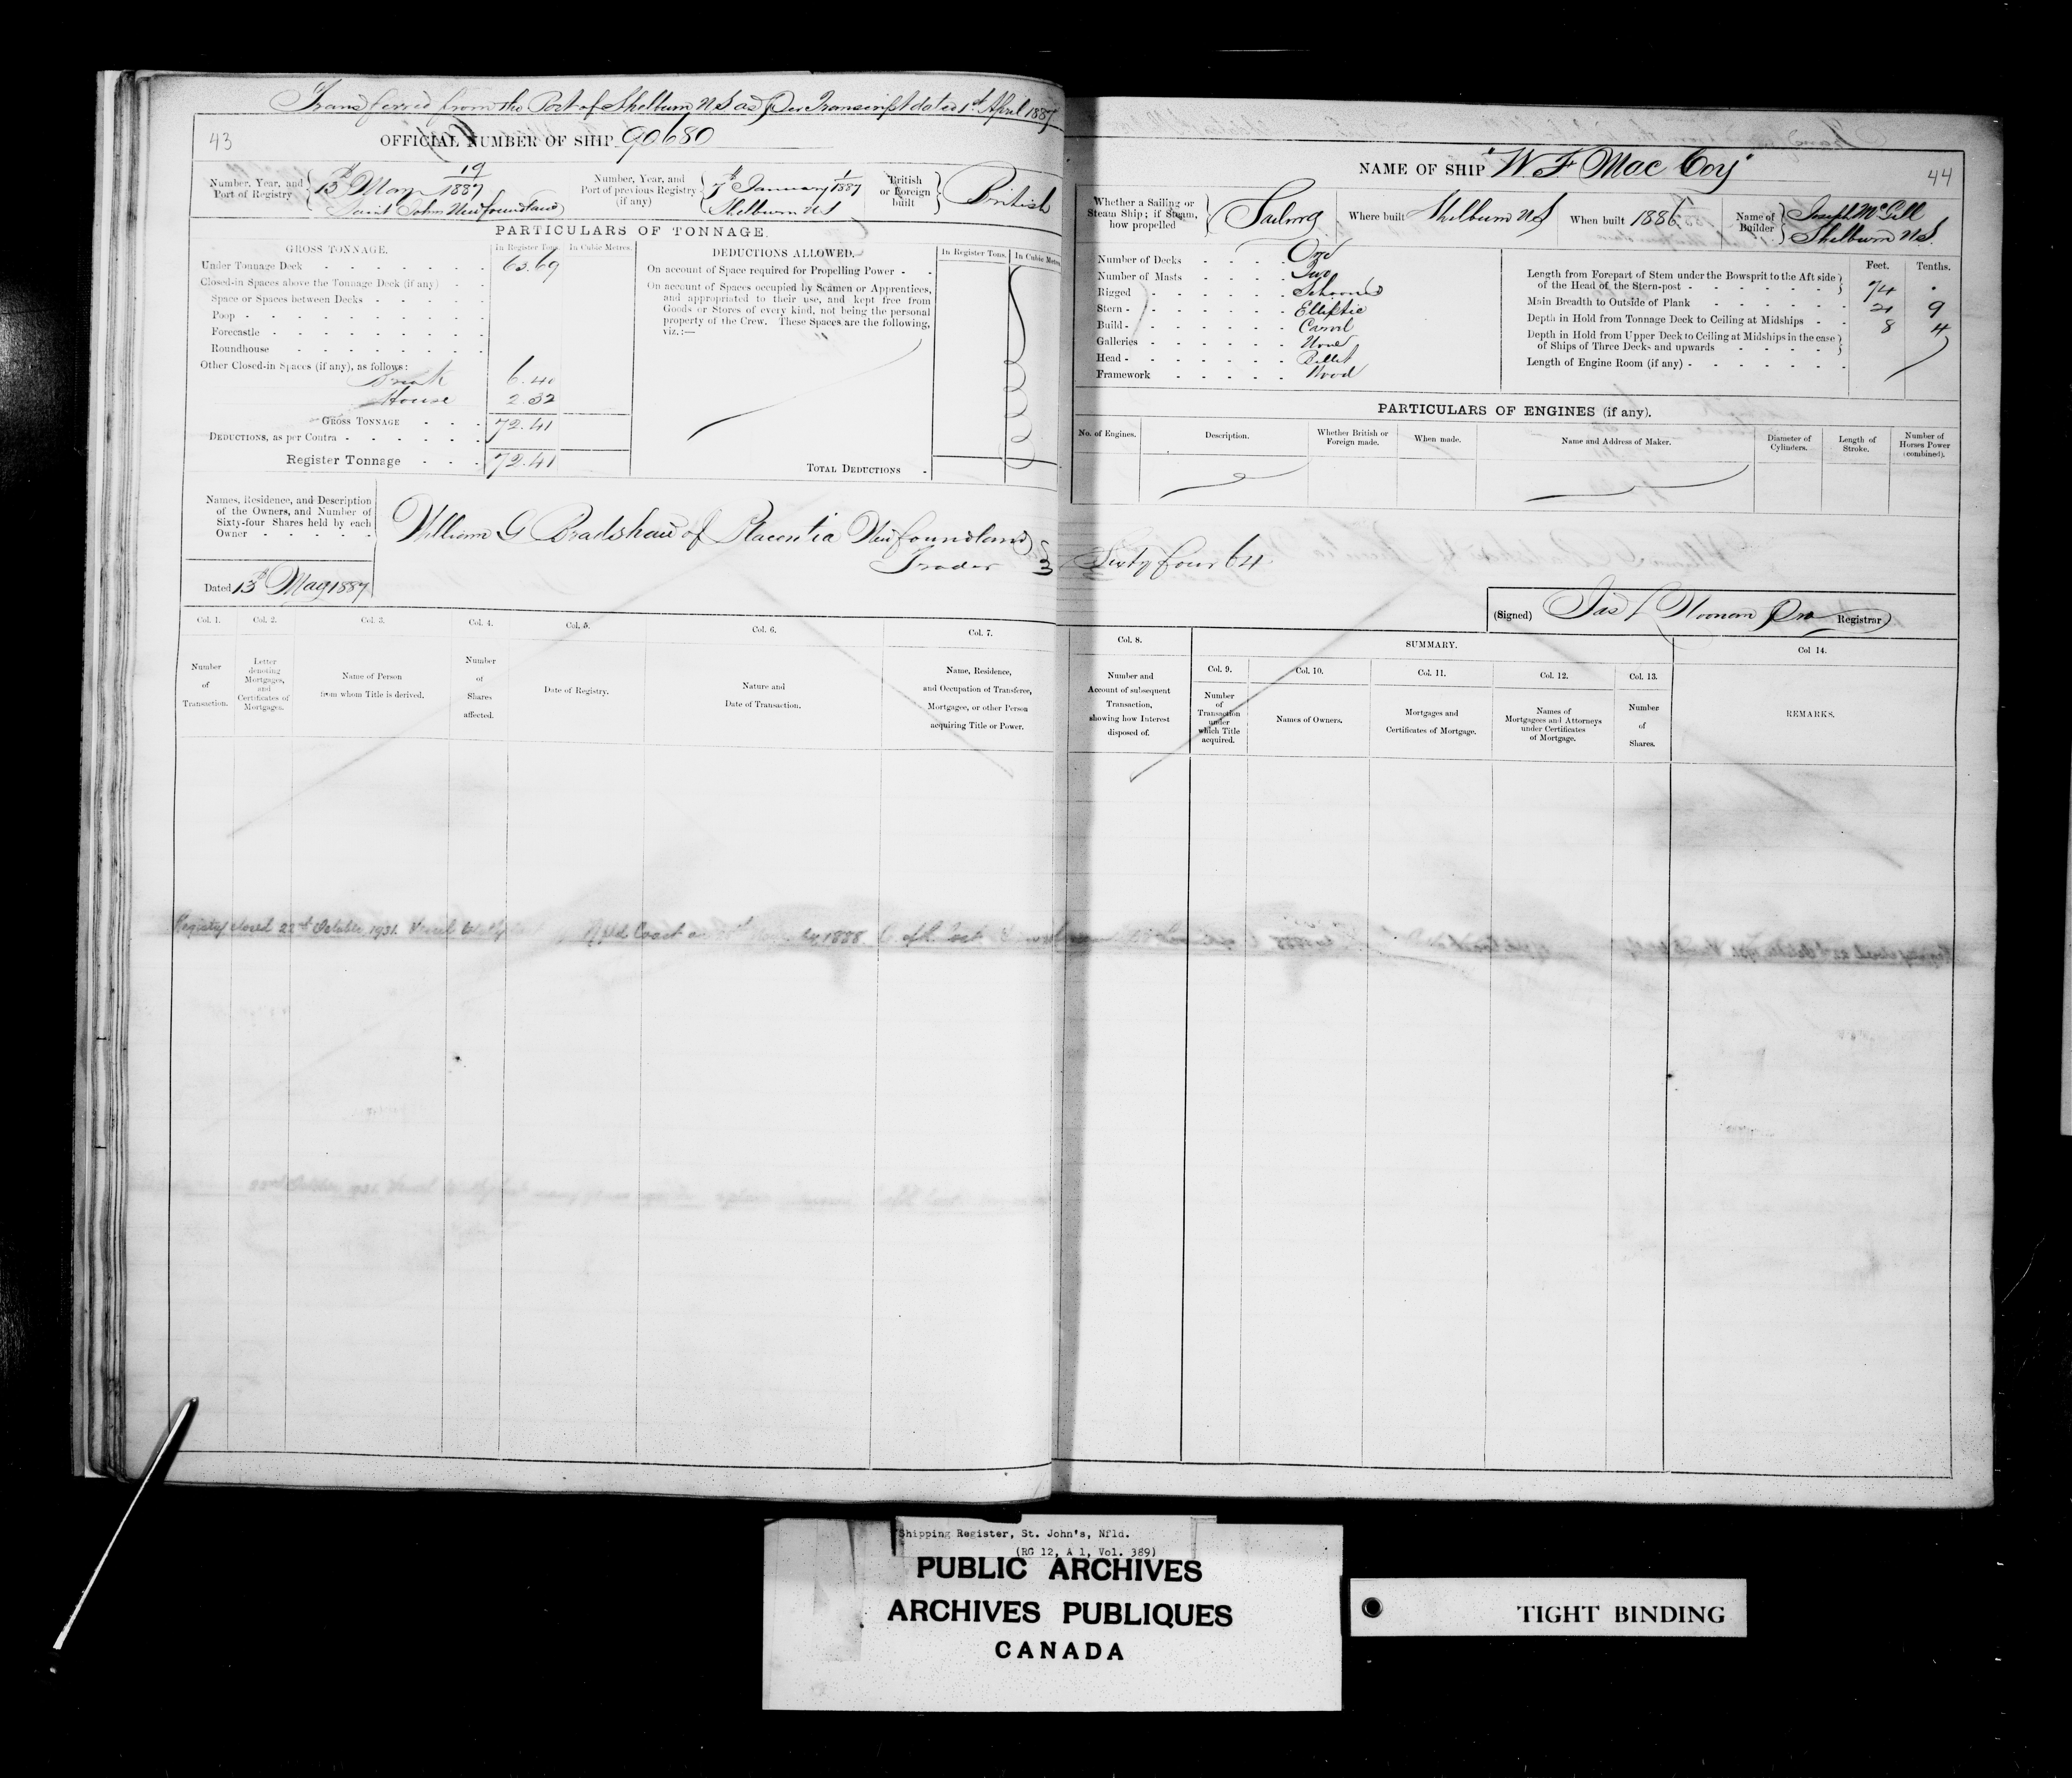 Transferred from the Port of Shelburn N S as Per Transcript dated 1st April 1887
43
OFFICIAL NUMBER OF SHIP 90680
Number, Year, and Port of Registry 13th May 19/1887 Saint Johns Newfoundland
Number, Year, and Port of previous Registry (if any) 7th January 1/1887 Shelburn N S
British or Foreign built British
PARTICULARS OF TONNAGE.
GROSS TONNAGE. In Register Tons. In Cubic Metres.
Under Tonnage Deck 63.69
Closed-in Spaces above the Tonnage Deck (if any)
Space or Spaces between Decks
Poop
Forecastle
Roundhouse
Other Closed-in Spaces (if any), as follows:
Break 6.40
House 2.32
GROSS TONNAGE 72.41
DEDUCTIONS, as per Contra
Register Tonnage 72.41
DEDUCTIONS ALLOWED. In Register Tons. In Cubic Metres.
On account of Space required for Propelling Power
On account of Spaces occupied by Seamen or Apprentices,
and appropriated to their use, and kept free from
Goods or Stores of every kind, not being the personal
property of the Crew. These Spaces are the following,
viz.:—
TOTAL DEDUCTIONS
Names, Residence, and Description
of the Owners, and Number of
Sixty-four Shares held by each
Owner
William G Bradshaw of Placentia Newfoundland
Trader
Dated 13th May 1887
Col. 1. Col. 2. Col. 3. Col. 4. Col. 5. Col. 6. Col. 7.
Number of Transaction.
Letter denoting Mortgages, and Certificates of Mortgages.
Name of Person from whom Title is derived.
Number of Shares affected.
Date of Registry.
Nature and Date of Transaction.
Name, Residence, and Occupation of Transferee, Mortgagee, or other Person acquiring Title or Power.
Registry closed 22nd October 1931. Vessel Nfld Coast 1888.
NAME OF SHIP "W F Mac Coy"
44
Whether a Sailing or Steam Ship; if Steam, how propelled Sailing
Where built Shelburn N S
When built 1886
Name of Builder Joseph McGill Shelburn N S.
Number of Decks One
Number of Masts Two
Rigged Schooner
Stern Elliptic
Build Carvel
Galleries None
Head Billet
Framework Wood
Feet. Tenths.
Length from Forepart of Stem under the Bowsprit to the Aft side
of the Head of the Stern-post 74 .
Main Breadth to Outside of Plank 21 9
Depth in Hold from Tonnage Deck to Ceiling at Midships 8 4
Depth in Hold from Upper Deck to Ceiling at Midships in the case
of Ships of Three Decks and upwards
Length of Engine Room (if any)
PARTICULARS OF ENGINES (if any).
No. of Engines. Description. Whether British or Foreign made. When made. Name and Address of Maker. Diameter of Cylinders. Length of Stroke. Number of Horses Power (combined).
Sixty four 64
(Signed) Registrar
Col. 8. SUMMARY. Col 14.
Col. 9. Col. 10. Col. 11. Col. 12. Col. 13.
Number and Account of subsequent Transaction, showing how Interest disposed of.
Number of Transaction under which Title acquired.
Names of Owners.
Mortgages and Certificates of Mortgage.
Names of Mortgagees and Attorneys under Certificates of Mortgage.
Number of Shares.
REMARKS.
Shipping Register, St. John's, Nfld.
(RG 12, A 1, Vol. 389)
PUBLIC ARCHIVES
ARCHIVES PUBLIQUES
CANADA
TIGHT BINDING